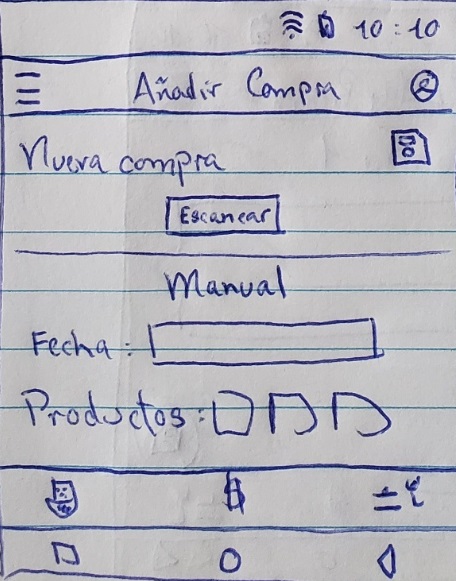 10:10
Añadir Compra
Nueva compra
Escanear
Manual
Fecha:
Productos:
$